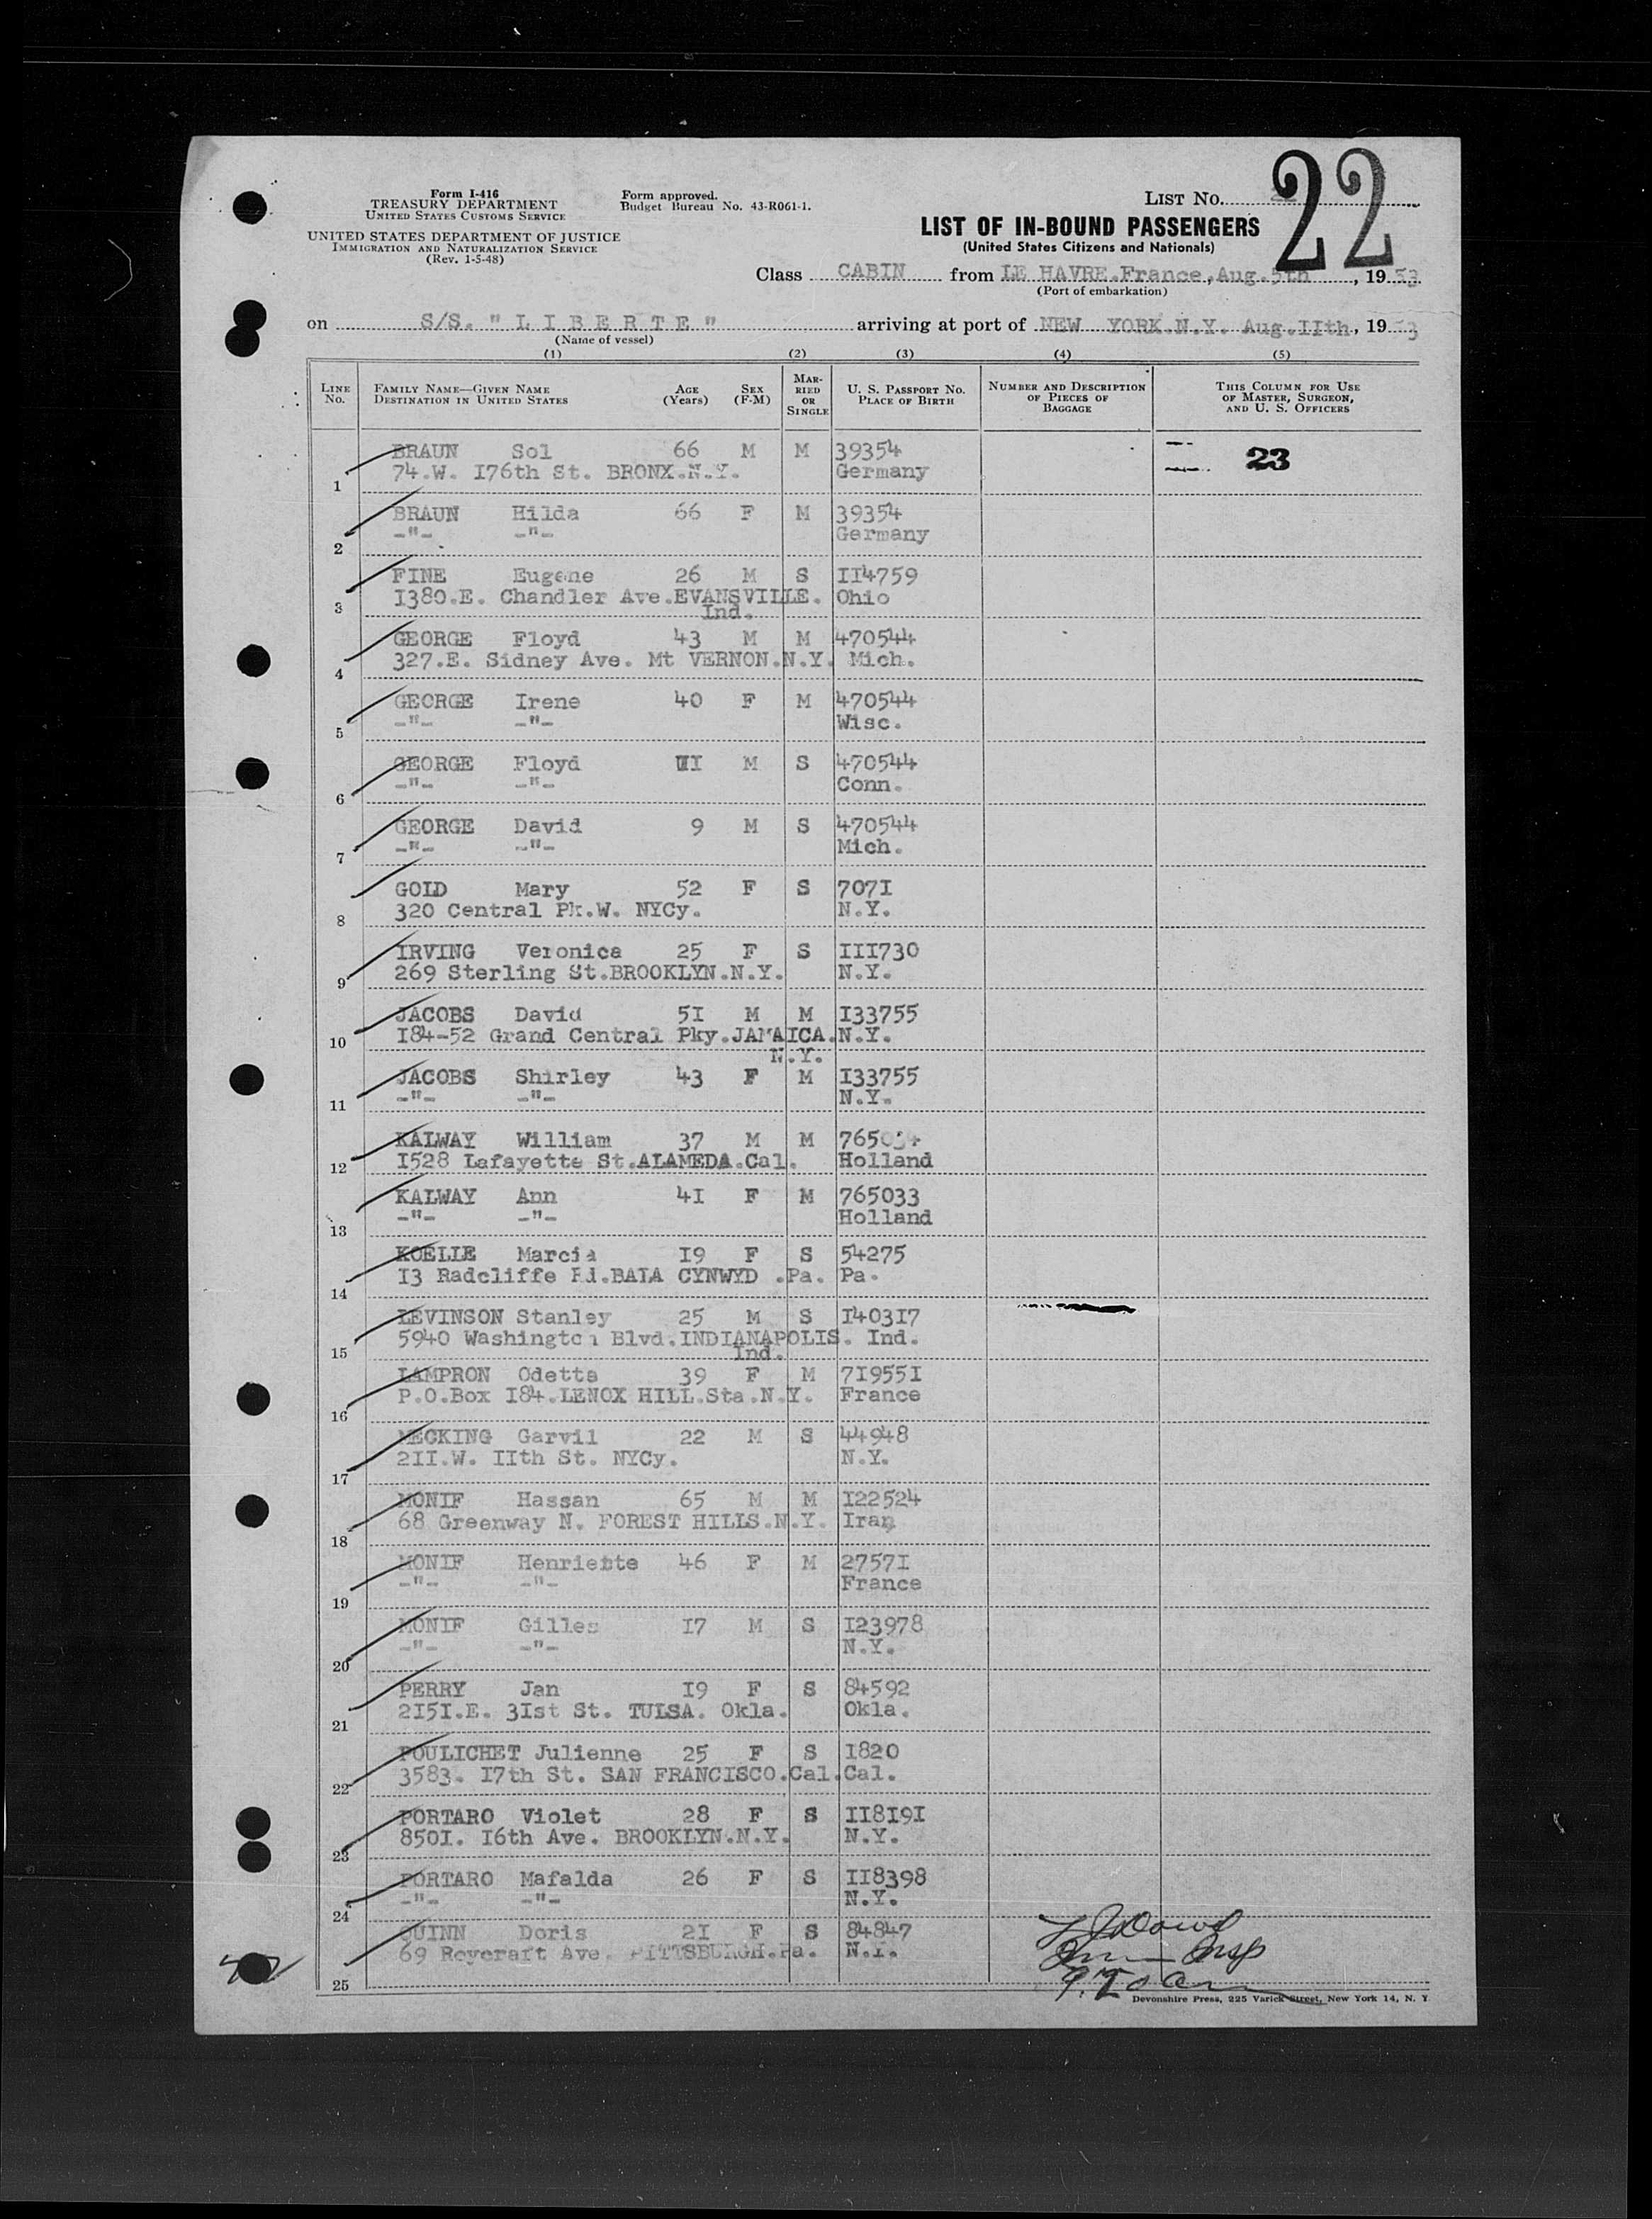 22
Form I-416
TREASURY DEPARTMENT
UNITED STATES CUSTOMS SERVICE
UNITED STATES DEPARTMENT OF JUSTICE
IMMIGRATION AND NATURALIZATION SERVICE
(Rev. 1-5-48)
Form approved.
Budget Bureau No. 43-R061-1.
LIST NO.
LIST OF IN-BOUND PASSENGERS
(United States Citizens and Nationals)
Class CABIN from LE HAVRE.France,Aug.5th, 1953
(Port of embarkation)
on S/S. " L I B E R T E " arriving at port of NEW YORK.N.Y. Aug.IIth, 1953
(Name of vessel)
(1) (2) (3) (4) (5)
LINE NO. FAMILY NAME—GIVEN NAME DESTINATION IN UNITED STATES AGE (Years) SEX (F-M) MARRIED OR SINGLE U. S. PASSPORT NO. PLACE OF BIRTH NUMBER AND DESCRIPTION OF PIECES OF BAGGAGE THIS COLUMN FOR USE OF MASTER, SURGEON, AND U. S. OFFICERS
BRAUN Sol 66 M M 39354 23
1 74.W. I76th St. BRONX.N.Y. Germany
BRAUN Hilda 66 F M 39354
2 -"- -"- Germany
FINE Eugene 26 M S II4759
3 I380.E. Chandler Ave.EVANSVILLE. Ohio
Ind.
GEORGE Floyd 43 M M 470544
4 327.E. Sidney Ave. Mt VERNON.N.Y. Mich.
GEORGE Irene 40 F M 470544
5 -"- -"- Wisc.
GEORGE Floyd II M S 470544
6 -"- -"- Conn.
GEORGE David 9 M S 470544
7 -"- -"- Mich.
GOLD Mary 52 F S 707I
8 320 Central Pk.W. NYCy. N.Y.
IRVING Veronica 25 F S III730
9 269 Sterling St.BROOKLYN.N.Y. N.Y.
JACOBS David 5I M M I33755
10 I84-52 Grand Central Pky.JAMAICA. N.Y.
N.Y.
JACOBS Shirley 43 F M I33755
11 -"- -"- N.Y.
KALWAY William 37 M M
12 I528 Lafayette St.ALAMEDA.Cal. Holland
KALWAY Ann 4I F M 765033
13 -"- -"- Holland
KOELLE Marcia I9 F S 54275
14 I3 Radcliffe Rd.BALA CYNWYD .Pa. Pa.
LEVINSON Stanley 25 M S I403I7
15 5940 Washington Blvd.INDIANAPOLIS. Ind.
Ind.
LAMPRON Odette 39 F M 7I955I
16 P.O.Box I84.LENOX HILL.Sta.N.Y. France
MECKING Garvil 22 M S 44948
17 2II.W. IIth St. NYCy. N.Y.
MONIF Hassan 65 M M I22524
18 68 Greenway N. FOREST HILLS.N.Y. Iran
MONIF Henriette 46 F M 2757I
19 -"- -"- France
MONIF Gilles I7 M S I23978
20 -"- -"- N.Y.
PERRY Jan I9 F S 84592
21 2I5I.E. 3Ist St. TULSA. Okla. Okla.
POULICHET Julienne 25 F S I820
22 3583. I7th St. SAN FRANCISCO.Cal. Cal.
PORTARO Violet 28 F S II8I9I
23 850I. I6th Ave. BROOKLYN.N.Y. N.Y.
PORTARO Mafalda 26 F S II8398
24 -"- -"- N.Y.
QUINN Doris 2I F S 84847
25 69 Roycraft Ave. PITTSBURGH.Pa.
Insp
Devonshire Press, 225 Varick Street, New York 14, N. Y.